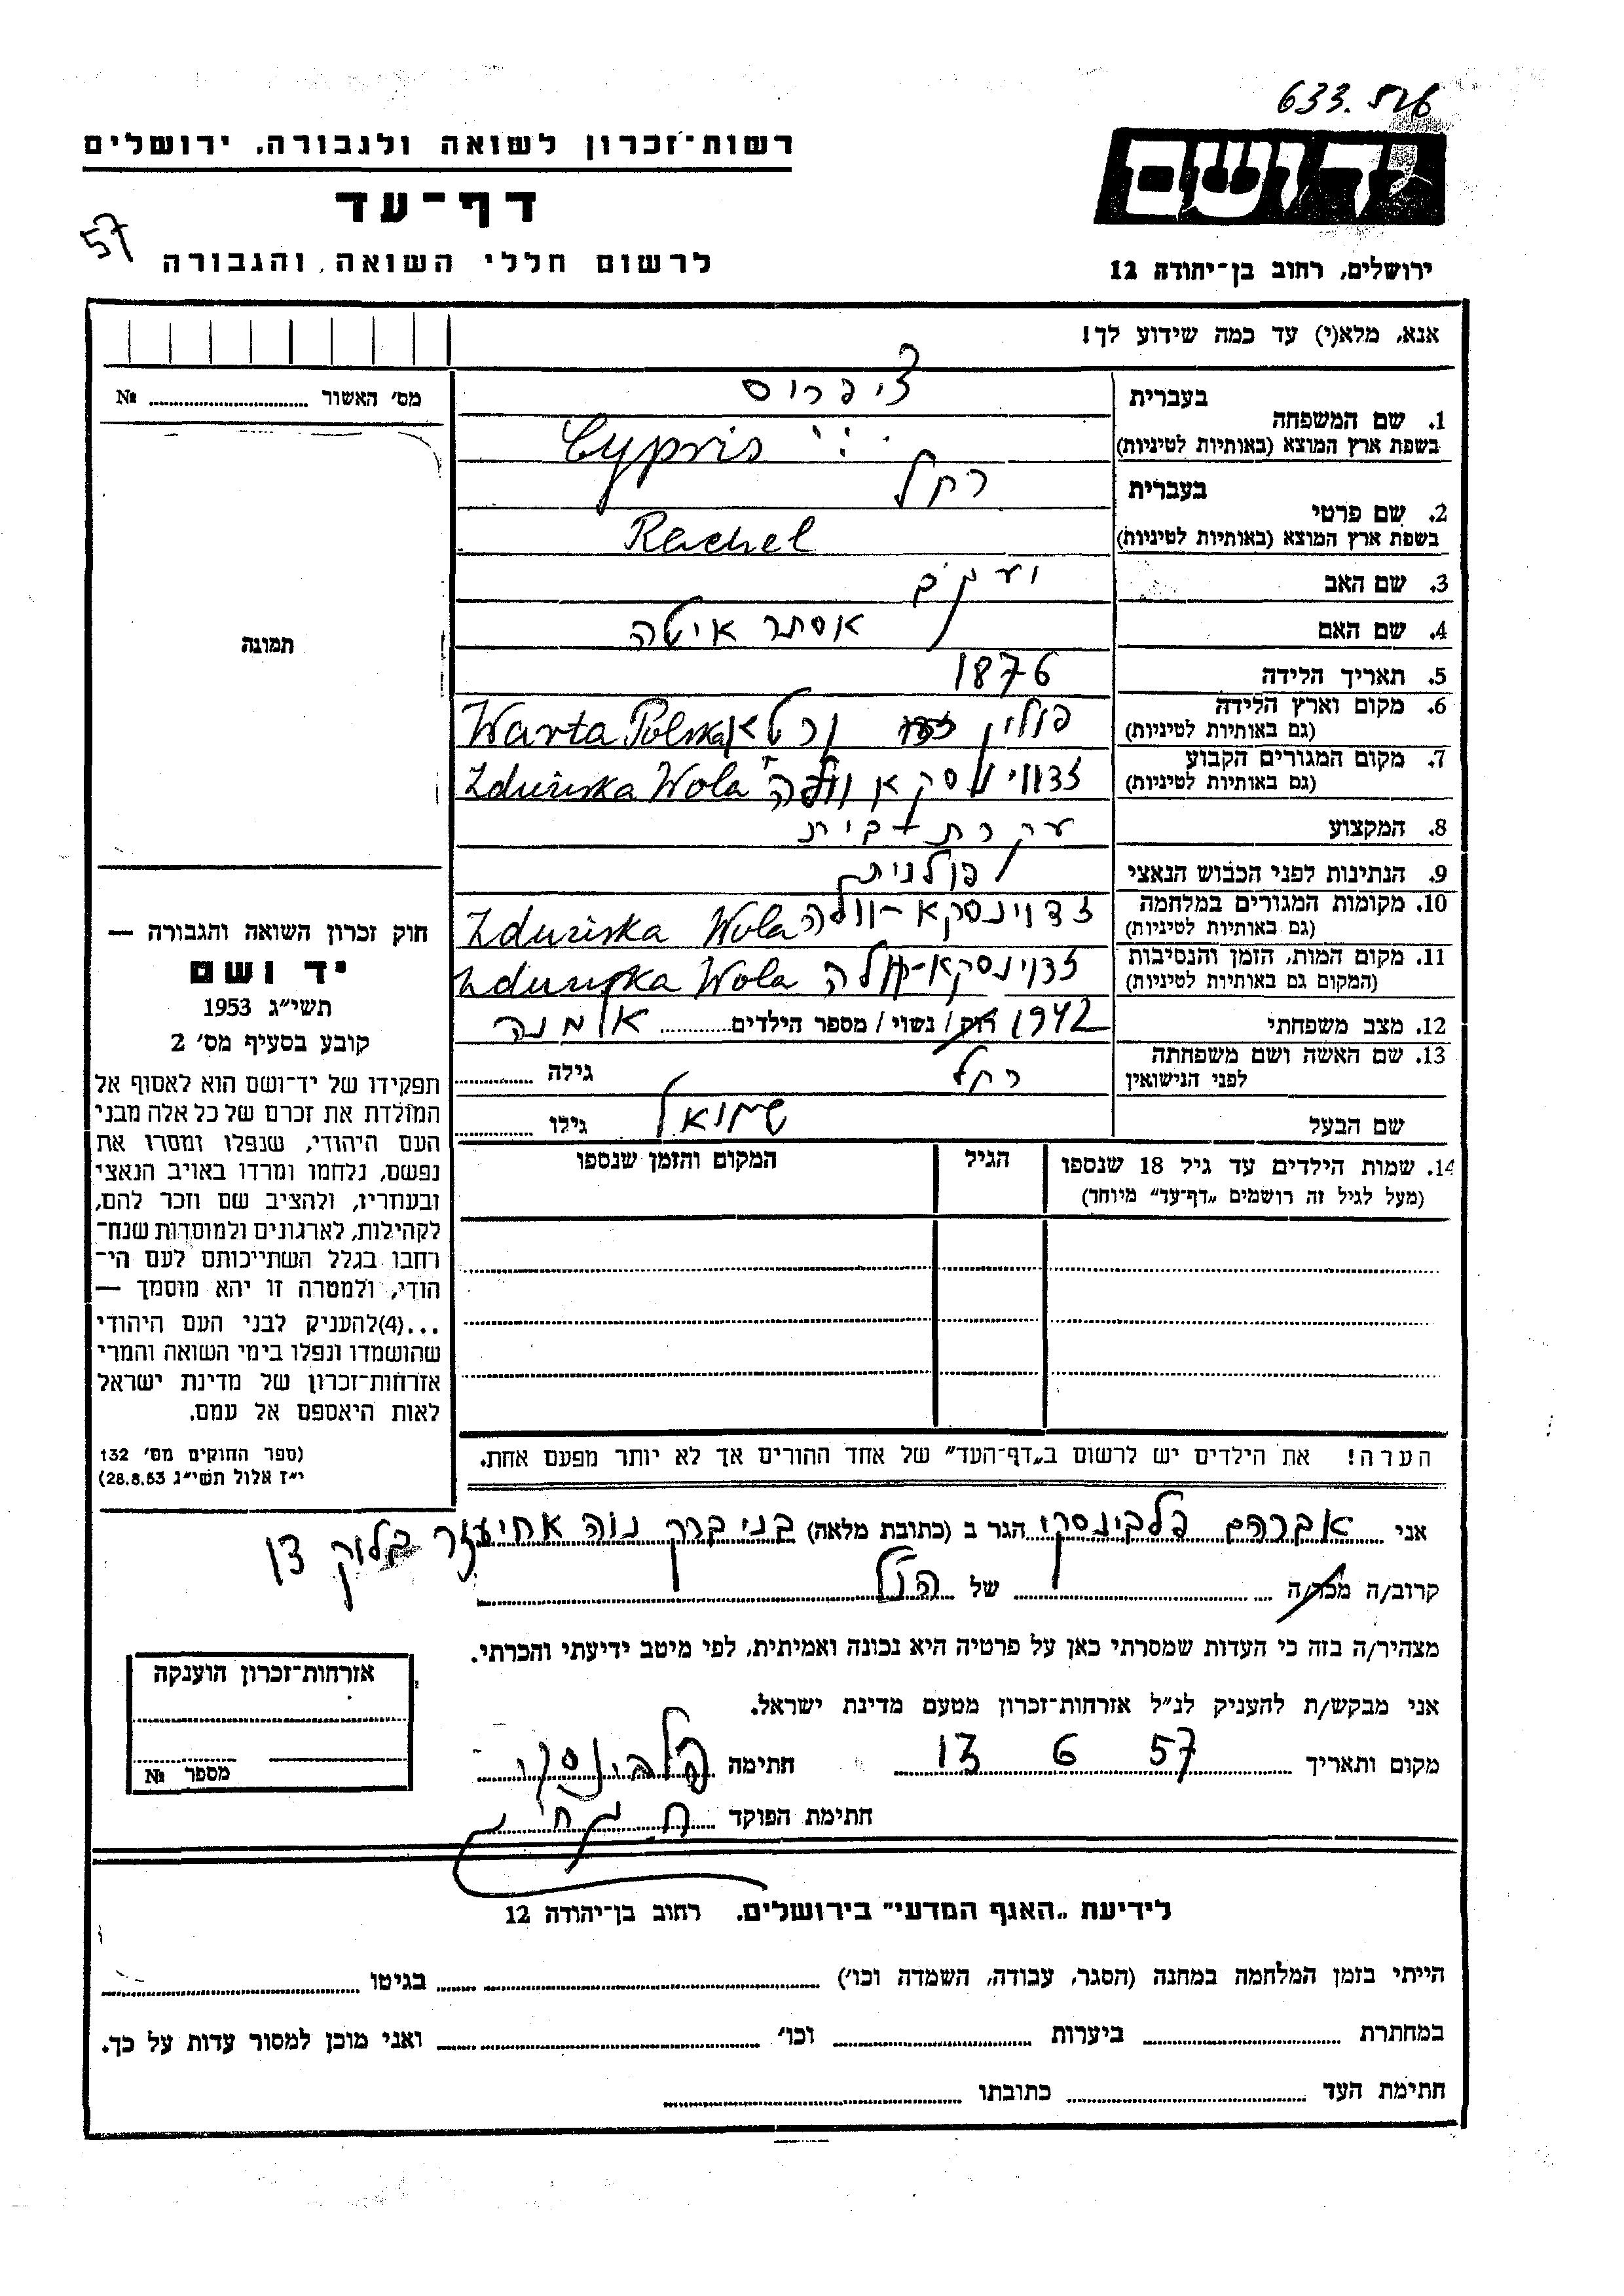 633.526
רשות־זכרון לשואה ולגבורה, ירושלים
יד ושם
דף־עד
57
לרשום חללי השואה והגבורה
ירושלים, רחוב בן־יהודה 12
אנא, מלא(י) עד כמה שידוע לך!
מס׳ האשור № 
בעברית
ציפרוס
1. שם המשפחה
בשפת ארץ המוצא (באותיות לטיניות)
Cypris
בעברית
רקל
2. שם פרטי
בשפת ארץ המוצא (באותיות לטיניות)
Rachel
3. שם האב
4. שם האם אסתר איטה
תמונה
5. תאריך הלידה 1876
6. מקום וארץ הלידה
(גם באותיות לטיניות)
פולין ורטא Warta Polska
7. מקום המגורים הקבוע
(גם באותיות לטיניות)
זדווינסקא וולה Zduńska Wola
8. המקצוע עקרת־בית
9. הנתינות לפני הכבוש הנאצי פולנית
10. מקומות המגורים במלחמה
(גם באותיות לטיניות)
זדוינסקא־וולה Zduńska Wola
11. מקום המות, הזמן והנסיבות
(המקום גם באותיות לטיניות)
זדוינסקא־וולה Zduńska Wola
1942
12. מצב משפחתי רוק / נשוי / מספר הילדים אלמנה
13. שם האשה ושם משפחתה
לפני הנישואין
רקל גילה
שם הבעל שמואל גילו
14. שמות הילדים עד גיל 18 שנספו
(מעל לגיל זה רושמים „דף־עד״ מיוחד)
הגיל
המקום והזמן שנספו
חוק זכרון השואה והגבורה —
יד ושם
תשי״ג 1953
קובע בסעיף מס׳ 2
תפקידו של יד־ושם הוא לאסוף אל
המולדת את זכרם של כל אלה מבני
העם היהודי, שנפלו ומסרו את
נפשם, נלחמו ומרדו באויב הנאצי
ובעוזריו, ולהציב שם וזכר להם,
לקהילות, לארגונים ולמוסדות שנח־
רחבו בגלל השתייכותם לעם הי־
הודי, ולמטרה זו יהא מוסמך —
...(4)להעניק לבני העם היהודי
שהושמדו ונפלו בימי השואה והמרי
אזרחות־זכרון של מדינת ישראל
לאות היאספם אל עמם.
(ספר החוקים מס׳ 132
י״ז אלול תשי״ג 28.8.53)
הערה! את הילדים יש לרשום ב„דף־העד״ של אחד ההורים אך לא יותר מפעם אחת.
אני אברהם פלבינסקי הגר ב (כתובת מלאה) בני ברק נוה אחיעזר בלוק
קרוב/ה מכר/ה של הנ״ל
מצהיר/ה בזה כי העדות שמסרתי כאן על פרטיה היא נכונה ואמיתית, לפי מיטב ידיעתי והכרתי.
אני מבקש/ת להעניק לנ״ל אזרחות־זכרון מטעם מדינת ישראל.
מקום ותאריך 13 6 57 חתימה פלבינסקי
חתימת הפוקד
אזרחות־זכרון הוענקה
מספר №
לידיעת „האגף המדעי״ בירושלים. רחוב בן־יהודה 12
הייתי בזמן המלחמה במחנה (הסגר, עבודה, השמדה וכו׳) בגיטו
במחתרת ביערות וכו׳ ואני מוכן למסור עדות על כך.
חתימת העד כתובתו